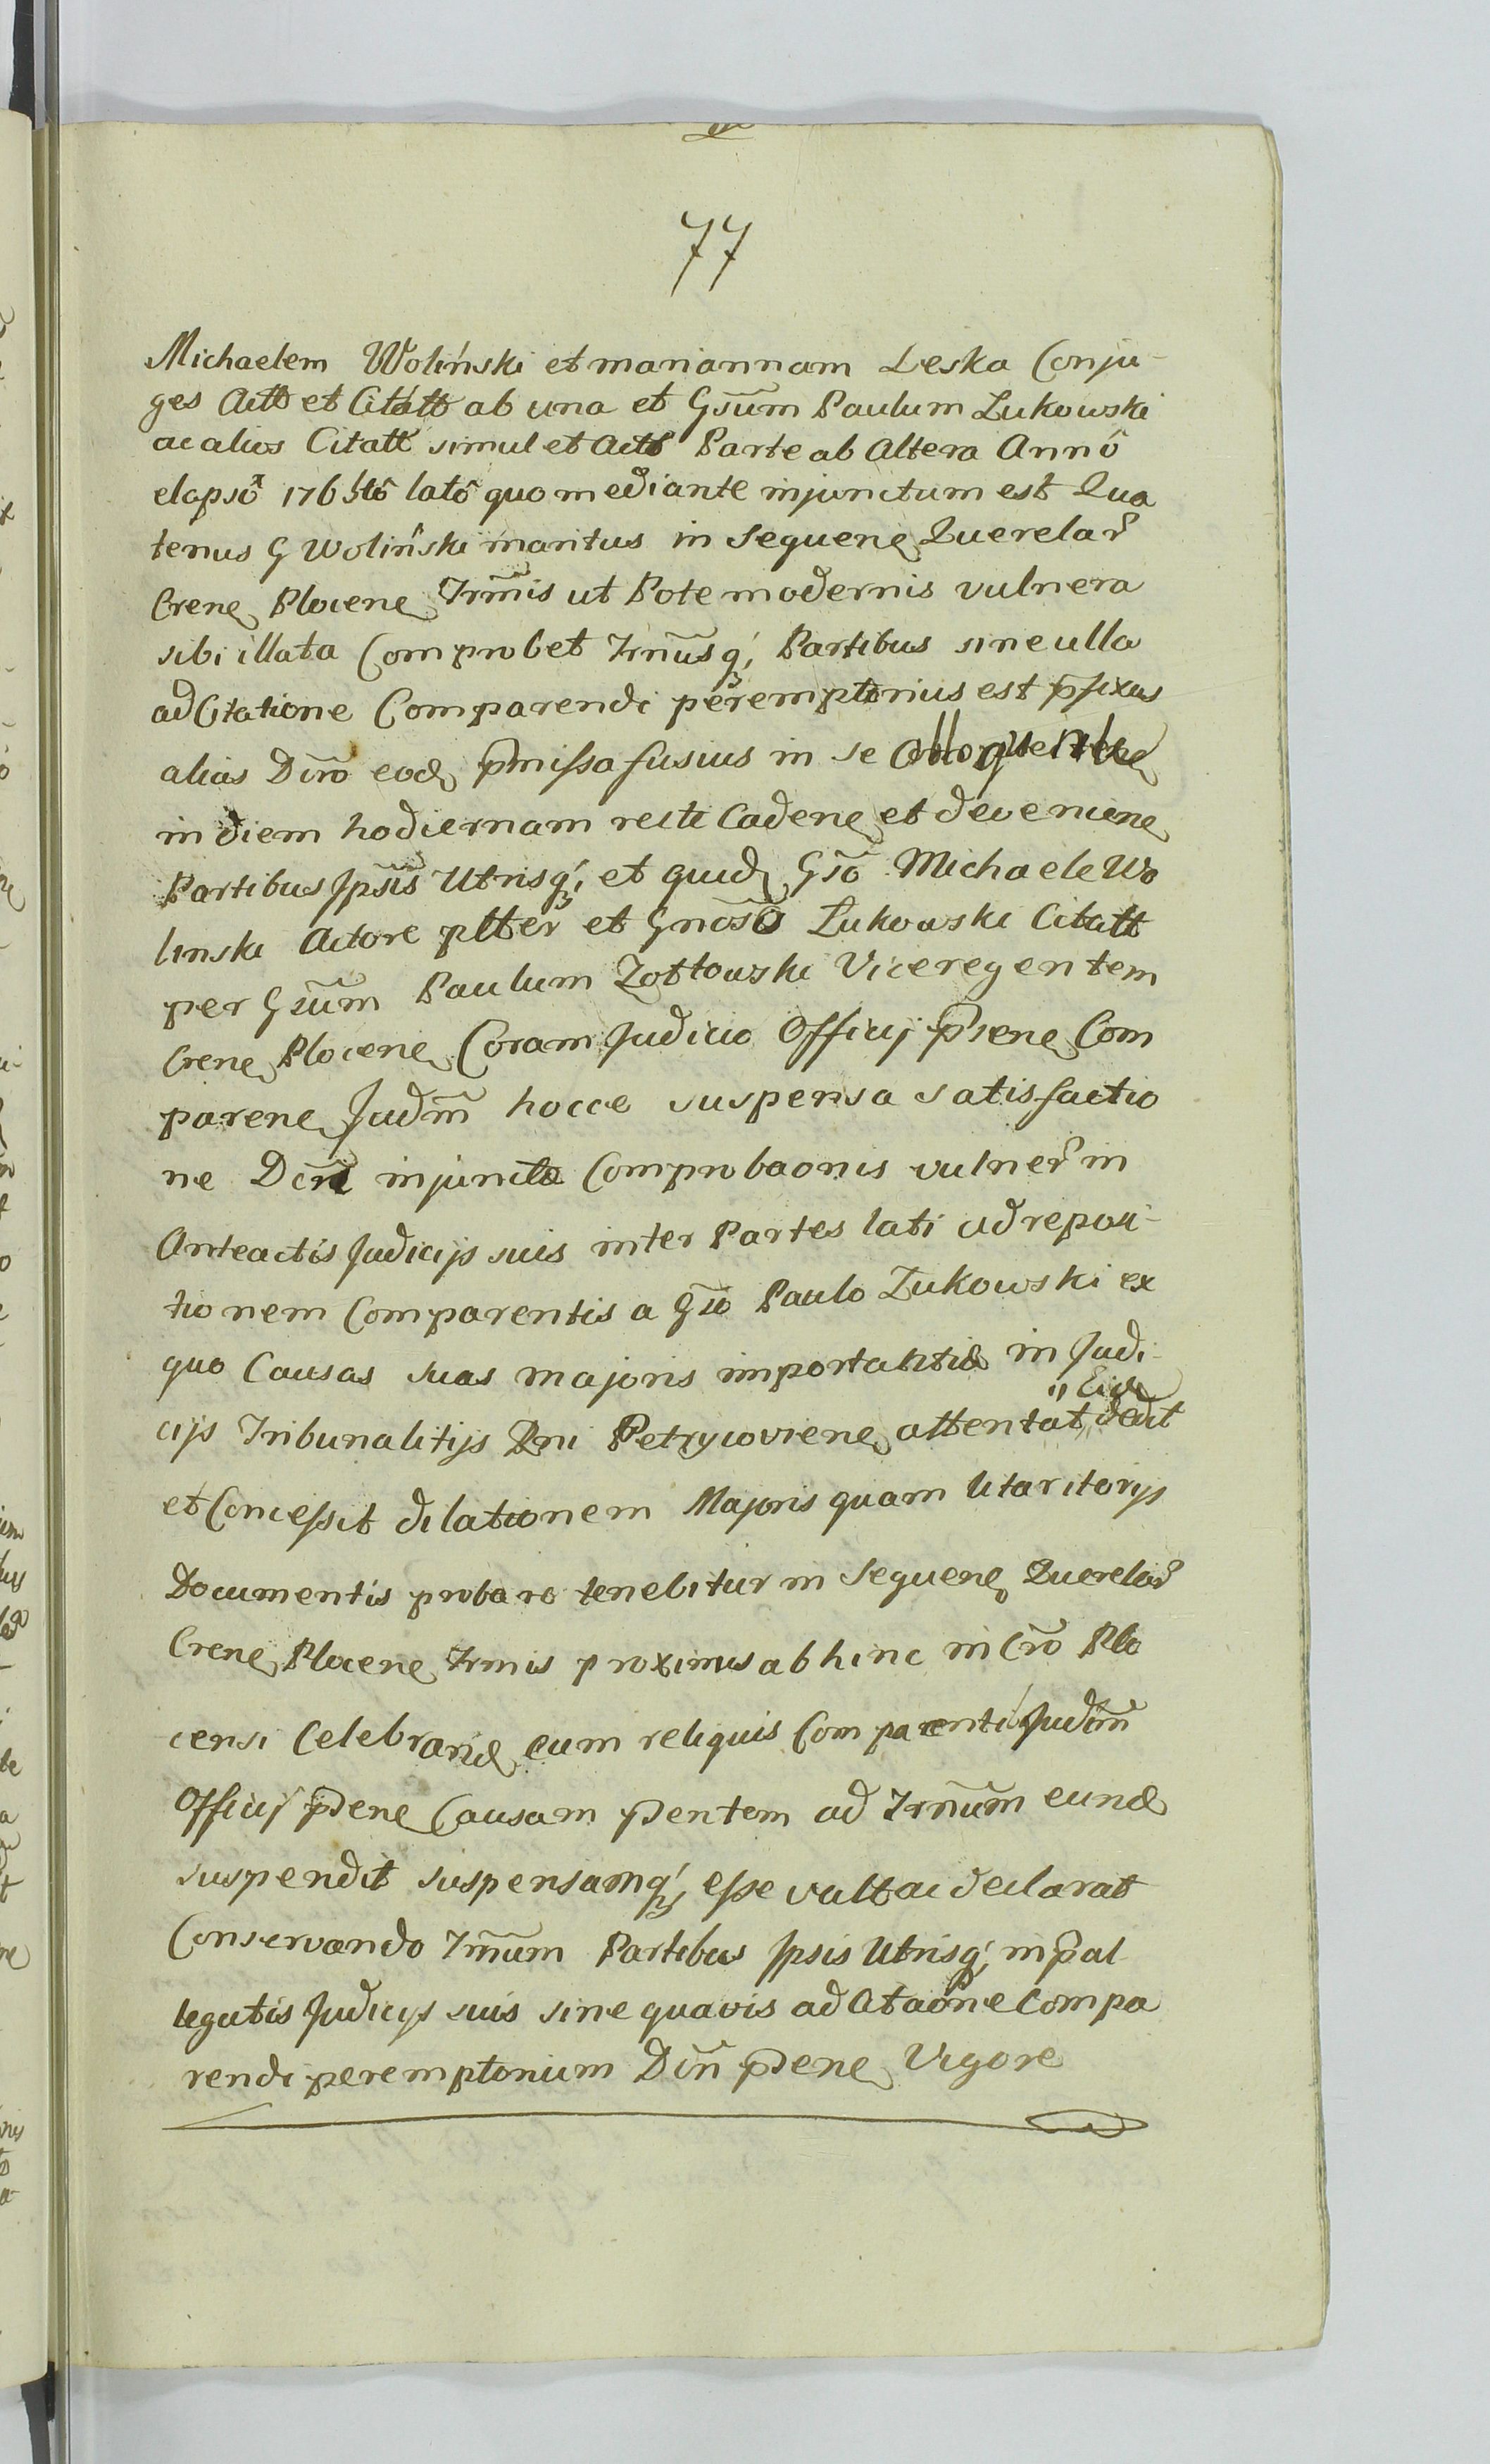 77
Michaelem Woliński et mariannam Leska Conju-
ges Actt et Citatt ab una et Gsūm Paulum Zukowski
ac alios Citatt simul et Actt Parte ab Altera Annô
elapsô 1765tô latô quo mediante injunctum est Qua
tenus G Woliński maritus in Sequen̄e Querelar̄
Crene Plocene Trm̄is ut Pote modernis vulnera
sibi illata Comprobet Trn̄usq́ Partibus sine ulla
ad Citatione Comparendi peremptorius est p̄fixus
alias Dīro eod p̄missa fusius in se
in diem hodiernam recte Cadene et devenene
Partibus Jpsīs Utrisq́; et quid Gsō Michaele Wo
linski Actore pltēr et Gnōsō Zukowski Citatt
per Gsūm Paulum Zołtowski Viceregentem
Crene Plocene Coram Judicio Officij p̄sene Com
parene Judm̄ hocce suspensa satisfactio
ne Dīri injuncta Comprobaonis vulner̄ in
Anteactis Judicijs suis inter Partes lati ad reposi-
tionem Comparentis a Gsō Paulo Zukowski ex
quo Causas suas majoris importantia in Judi-
cijs Tribunalitijs Rni Petrycoviene attentat, dedit
" Eide
et Concessit dilationem Majoris quam litaritorijs
Documentis probare tenebitur in Sequene Querelar̄
Crene Plocene Trmis proximis abhinc in Crō Plo
censi Celebrand cum reliquis Comparenti Judm̄
Officij p̄sene Causam p̄sentem ad Trn̄um eund
suspendit suspensamq́; esse vult ac declarat
Conservando Trn̄um Partibus Jpsis Utrisq́; in p̄al
legatis Judicijs suis sine quavis ad Citaōne Compa
rendi peremptorium Dīri p̄sene Vigore